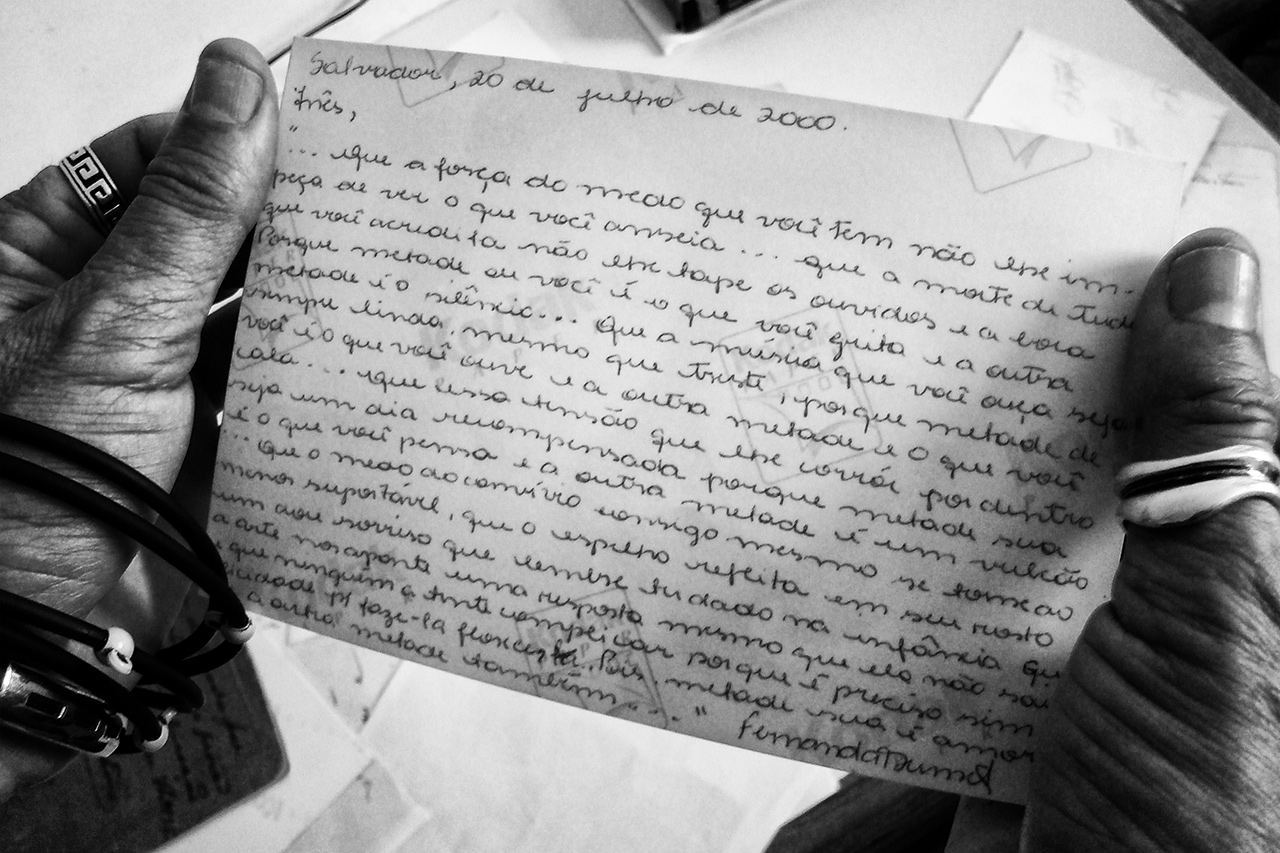 Salvador, 20 de julho de 2000.
Inês,
"... que a força do medo que você tem não lhe im-
peça de ver o que você anseia... que a morte de tudo
que você acredita não lhe tape os ouvidos e a boca
Porque metade de você é o que você grita e a outra
metade é o silêncio... Que a música que você ouça seja
sempre linda, mesmo que triste, porque metade de
você é o que você ouve e a outra metade é o que você
cala... que essa tensão que lhe corrói por dentro
seja um dia recompensada porque metade sua
é o que você pensa e a outra metade é um vulcão
... Que o medo do convívio consigo mesmo se torne ao
menos suportável, que o espelho reflita em seu rosto
um doce sorriso que lembre ter dado na infância Que
a arte nos aponte uma resposta mesmo que ela não sai
e que ninguém a tente complicar porque é preciso sim
plicidade p/ faze-la florescer.. Pois metade sua é amor
a outra metade também"..."
Fernanda
Kodak